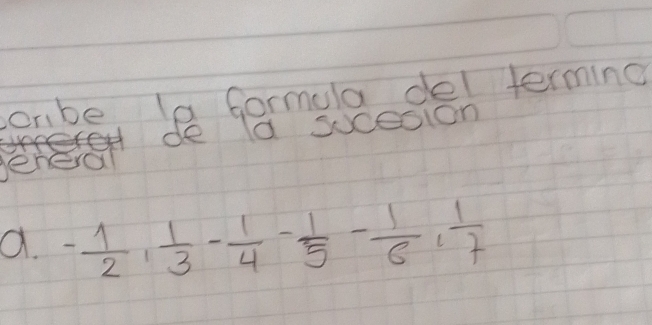 cribe la formula del termino
de la sucesion
general
a. - 1/2, 1/3 - 1/4 - 1/5 - 1/6, 1/7